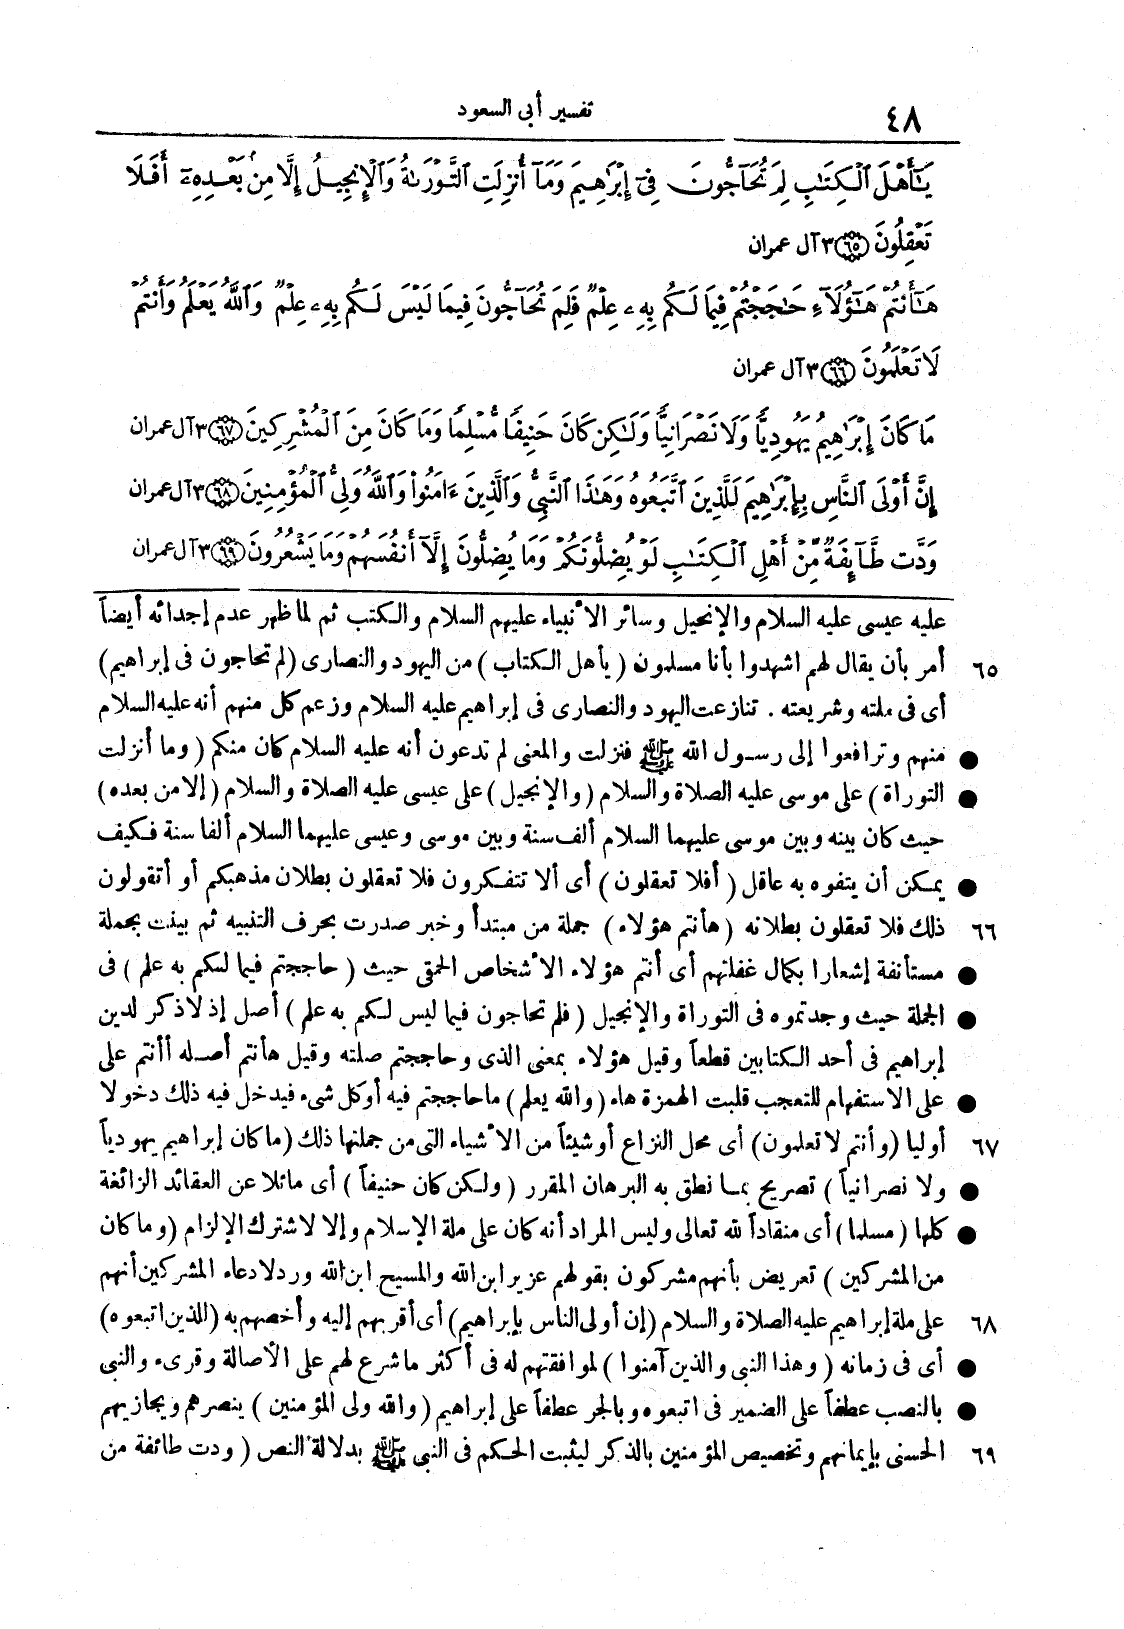 ٤٨
تفسير أبى السعود
يَـٰٓأَهْلَ ٱلْكِتَـٰبِ لِمَ تُحَآجُّونَ فِىٓ إِبْرَٰهِيمَ وَمَآ أُنزِلَتِ ٱلتَّوْرَىٰةُ وَٱلْإِنجِيلُ إِلَّا مِنۢ بَعْدِهِۦٓ أَفَلَا
تَعْقِلُونَ ﴿٦٥﴾ ٣ آل عمران
هَـٰٓأَنتُمْ هَـٰٓؤُلَآءِ حَـٰجَجْتُمْ فِيمَا لَكُم بِهِۦ عِلْمٌ فَلِمَ تُحَآجُّونَ فِيمَا لَيْسَ لَكُم بِهِۦ عِلْمٌ وَٱللَّهُ يَعْلَمُ وَأَنتُمْ
لَا تَعْلَمُونَ ﴿٦٦﴾ ٣ آل عمران
مَا كَانَ إِبْرَٰهِيمُ يَهُودِيًّا وَلَا نَصْرَانِيًّا وَلَـٰكِن كَانَ حَنِيفًا مُّسْلِمًا وَمَا كَانَ مِنَ ٱلْمُشْرِكِينَ ﴿٦٧﴾ ٣ آل عمران
إِنَّ أَوْلَى ٱلنَّاسِ بِإِبْرَٰهِيمَ لَلَّذِينَ ٱتَّبَعُوهُ وَهَـٰذَا ٱلنَّبِىُّ وَٱلَّذِينَ ءَامَنُوا۟ وَٱللَّهُ وَلِىُّ ٱلْمُؤْمِنِينَ ﴿٦٨﴾ ٣ آل عمران
وَدَّت طَّآئِفَةٌ مِّنْ أَهْلِ ٱلْكِتَـٰبِ لَوْ يُضِلُّونَكُمْ وَمَا يُضِلُّونَ إِلَّآ أَنفُسَهُمْ وَمَا يَشْعُرُونَ ﴿٦٩﴾ ٣ آل عمران
عليه عيسى عليه السلام والإنجيل وسائر الأنبياء عليهم السلام والكتب ثم لما ظهر عدم إجدائه أيضاً
٦٥ أمر بأن يقال لهم اشهدوا بأنا مسلمون (يأهل الكتاب) من اليهود والنصارى (لم تحاجون فى إبراهيم)
أى فى ملته وشريعته . تنازعت اليهود والنصارى فى إبراهيم عليه السلام وزعم كل منهم أنه عليه السلام
● منهم وترافعوا إلى رسول الله ﷺ فنزلت والمعنى لم تدعون أنه عليه السلام كان منكم (وما أنزلت
● التوراة) على موسى عليه الصلاة والسلام (والإنجيل) على عيسى عليه الصلاة والسلام (إلا من بعده)
حيث كان بينه وبين موسى عليهما السلام ألف سنة وبين موسى وعيسى عليهما السلام ألفا سنة فكيف
● يمكن أن يتفوه به عاقل (أفلا تعقلون) أى ألا تتفكرون فلا تعقلون بطلان مذهبكم أو أتقولون
٦٦ ذلك فلا تعقلون بطلانه (هأنتم هؤلاء) جملة من مبتدأ وخبر صدرت بحرف التنبيه ثم بينت بجملة
● مستأنفة إشعارا بكمال غفلتهم أى أنتم هؤلاء الأشخاص الحمقى حيث (حاججتم فيما لكم به علم) فى
● الجملة حيث وجدتموه فى التوراة والإنجيل (فلم تحاجون فيما ليس لكم به علم) أصل إذ لا ذكر لدين
إبراهيم فى أحد الكتابين قطعاً وقيل هؤلاء بمعنى الذى وحاججتم صلته وقيل هأنتم أصله أأنتم على
● على الاستفهام للتعجب قلبت الهمزة هاء (والله يعلم) ما حاججتم فيه أو كل شىء فيدخل فيه ذلك دخولا
٦٧ أوليا (وأنتم لا تعلمون) أى محل النزاع أو شيئاً من الأشياء التى من جملتها ذلك (ما كان إبراهيم يهودياً
● ولا نصرانياً) تصريح بما نطق به البرهان المقرر (ولكن كان حنيفاً) أى مائلا عن العقائد الزائغة
● كلها (مسلما) أى منقاداً لله تعالى وليس المراد أنه كان على ملة الإسلام وإلا لاشترك الإلزام (وما كان
من المشركين) تعريض بأنهم مشركون بقولهم عزير ابن الله والمسيح ابن الله ورد لادعاء المشركين أنهم
٦٨ على ملة إبراهيم عليه الصلاة والسلام (إن أولى الناس بإبراهيم) أى أقربهم إليه وأخصهم به (للذين اتبعوه)
● أى فى زمانه (وهذا النبى والذين آمنوا) لموافقتهم له فى أكثر ما شرع لهم على الأصالة وقرىء والنبى
● بالنصب عطفاً على الضمير فى اتبعوه وبالجر عطفاً على إبراهيم (والله ولى المؤمنين) ينصرهم ويجازيهم
٦٩ الحسنى بإيمانهم وتخصيص المؤمنين بالذكر ليثبت الحكم فى النبى ﷺ بدلالة النص (ودت طائفة من